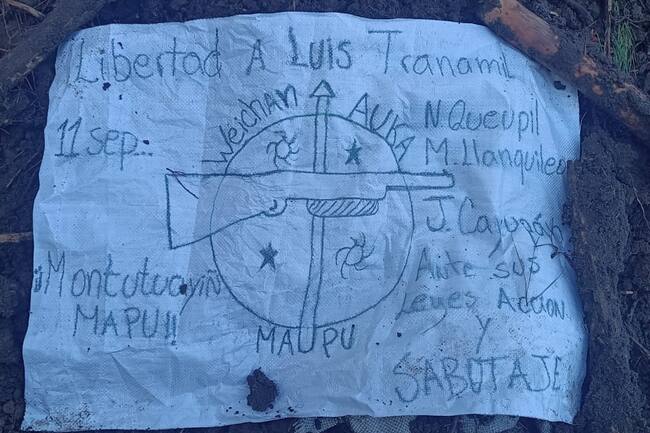 Libertad A LUIS Tranamil
11 sep..
Weichan AUKA MAUPU
N. Queupil
M. Llanquileo
J. Cayupán
Ante sus
Leyes Acción
y
SABOTAJE
¡¡Montutuayiñ
MAPU!!